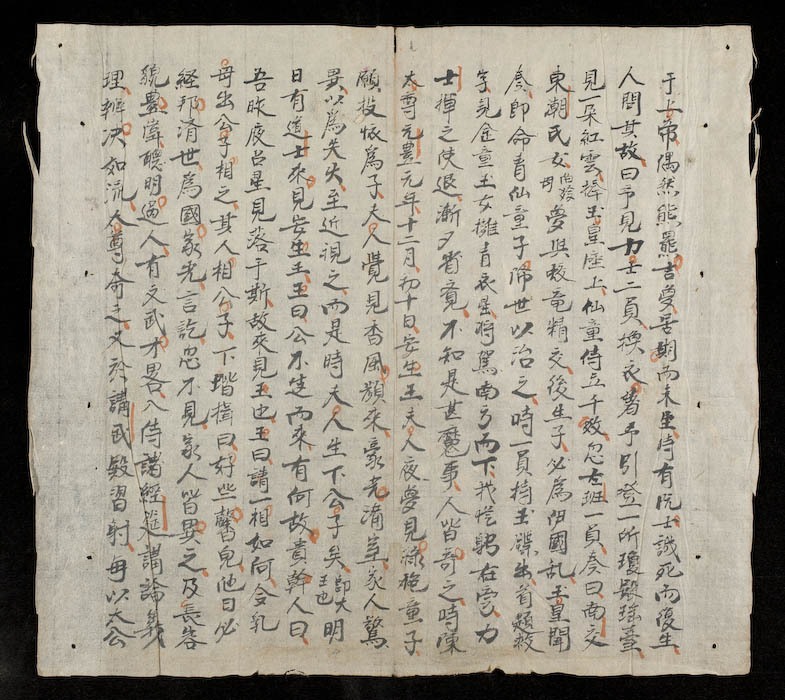 于上帝偶然熊羆吉夢居期而未生時有阮士誠死而復生
人問其故曰予見力士二員換衣著予引登一所瓊殿瑤臺
見一朵紅雲捧玉皇座上仙童侍立千数忽左班一員奏曰南交
東潮民女伯玲母夢與蛟竜精交後生子必為伊國乱玉皇聞
奏即命青仙童子降世以治之時一員持玉牒出首題救
字見金童玉女擁青衣將駕南方而下我從躬在雲力
士揮之使退漸夕省竟不知是甚麼事人皆奇之時陳
太尊元豊元年十二月初十日安生王夫人夜夢見綠袍童子
願投懷為子夫人覺見香風頻來豪光滿室家人驚
異以為失火至近視之而是時夫人生下公子矣即大王也明
日有道士來見安生王王曰公不速而來有何故貴幹人曰
吾昨夜占星見落于斯故來見王也王曰請一相如何令乳
母出公子相之其人相公子下堦揖曰好些馨兒他日必
經邦濟世為國家光言訖忽不見家人皆異之及長容
貌豊偉聰明過人有文武才畧入侍講經筵講論義
理辨决如流太尊奇之又於講武殿習射每以太公